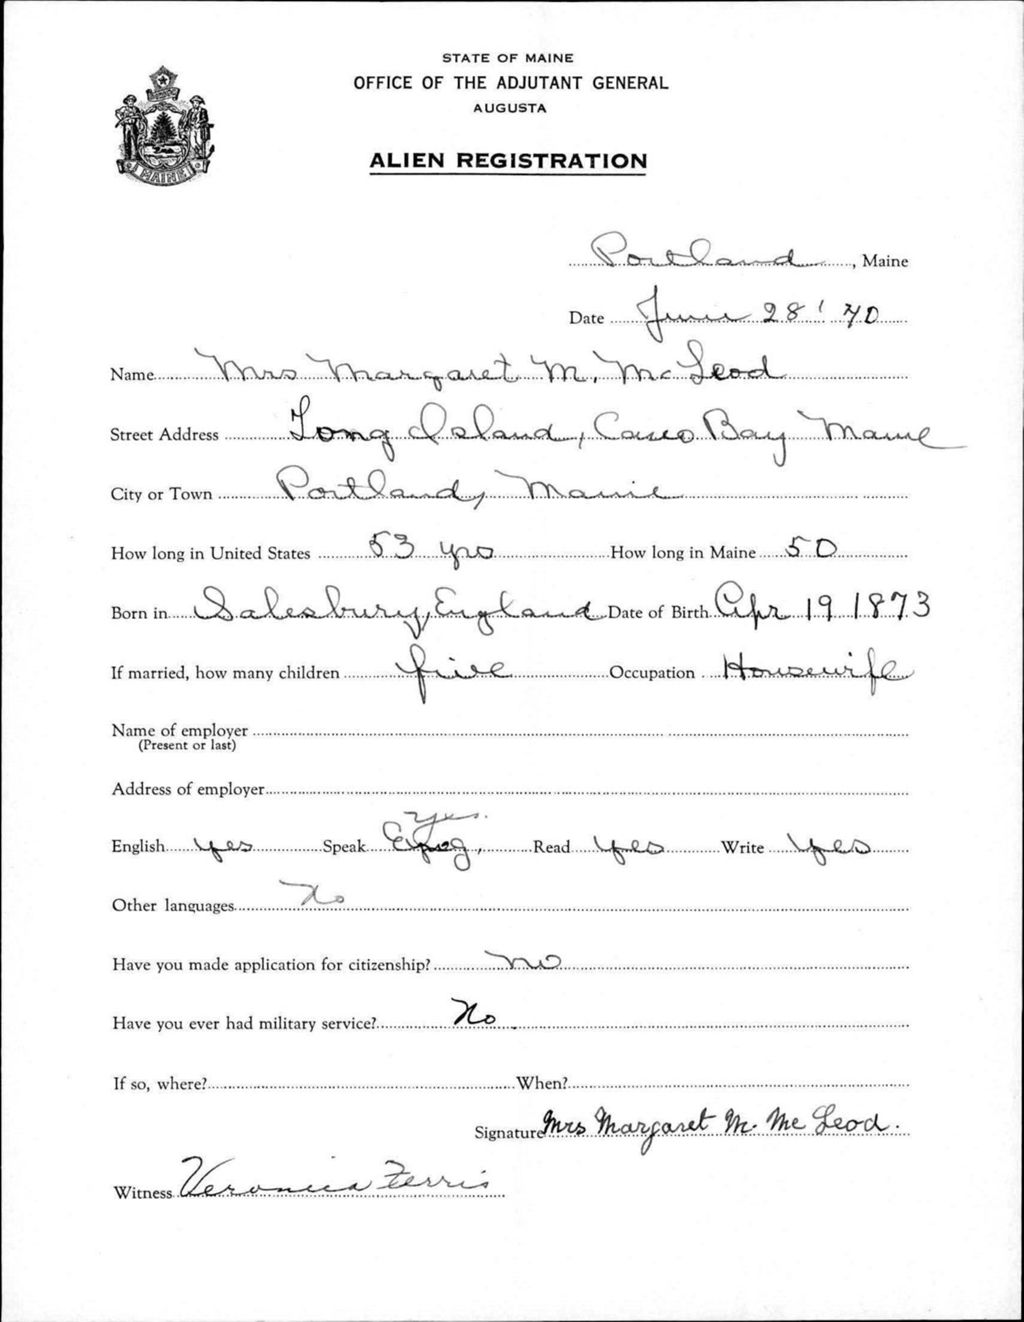 STATE OF MAINE
OFFICE OF THE ADJUTANT GENERAL
AUGUSTA
ALIEN REGISTRATION
MAINE
Portland, Maine
Date June 28 '40
Name Mrs Margaret M. McLeod
Street Address Long Island, Casco Bay Maine
City or Town Portland, Maine
How long in United States 53 yrs How long in Maine 50
Born in Salesbury, England Date of Birth Apr 19 1873
If married, how many children five Occupation Housewife
Name of employer
(Present or last)
Address of employer
Yes.
English yes Speak Read yes Write yes
Other languages No
Have you made application for citizenship? no
Have you ever had military service? No.
If so, where? When?
Signature Mrs Margaret M. McLeod.
Witness Veronica Ferris